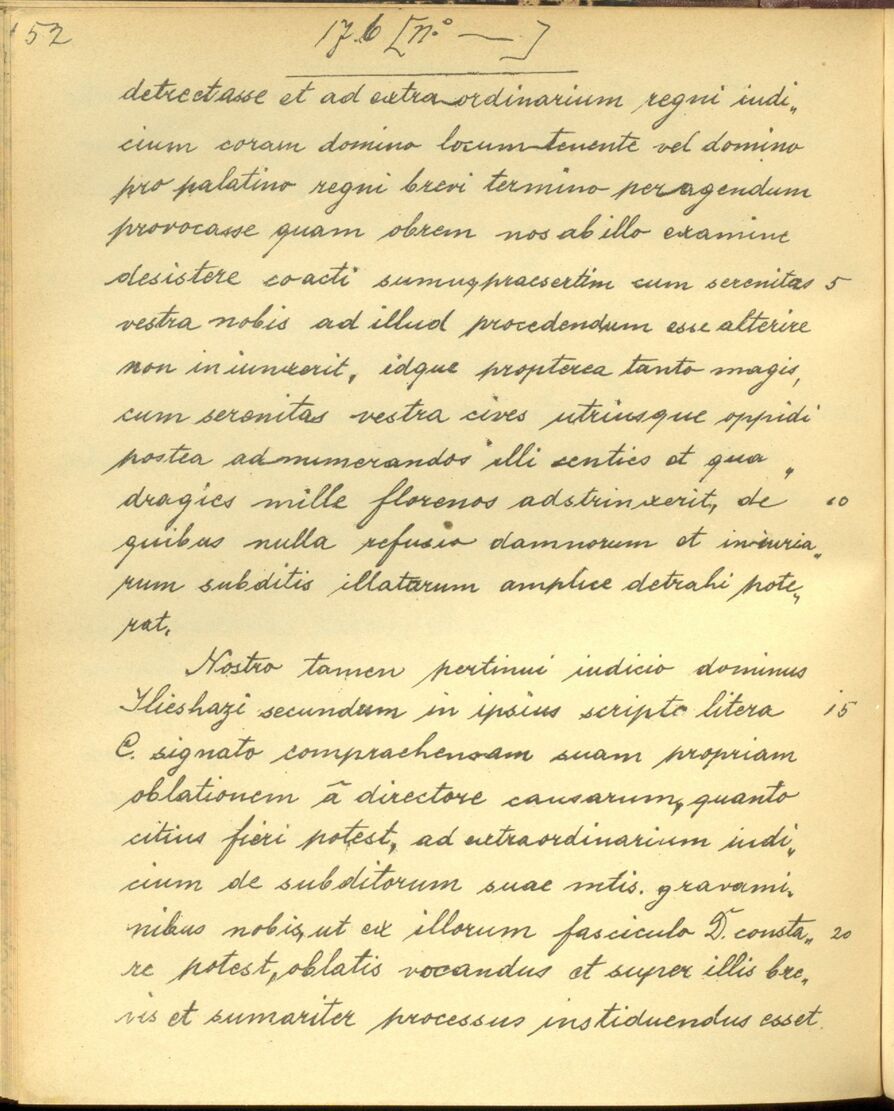 52
176 [N.° — ]
detrectasse et ad extraordinarium regni iudi„
cium coram domino locum tenente vel domino
pro palatino regni brevi termino peragendum
provocasse quam obrem nos ab illo examine
desistere coacti sumus, praesertim cum serenitas 5
vestra nobis ad illud procedendum esse alterire
non iniunxerit, idque propterea tanto magis,
cum serenitas vestra cives utriusque oppidi
postea ad numerandos illi centies et qua„
dragies mille florenos adstrinxerit, de 10
quibus nulla refusio damnorum et iniuria„
rum subditis illatarum amplice detrahi pote„
rat.
Nostro tamen pertinui iudicio dominus
Ilieshazi secundum in ipsius scripto litera 15
C. signato comprachensam suam propriam
oblationem ã directore causarum, quanto
citius fieri potest, ad extraordinarium iudi„
cium de subditorum suae mtis. gravami„
nibus nobis, ut ex illorum fasciculo D. consta„ 20
re potest, oblatis vocandus et super illis bre„
vis et sumariter processus instiduendus esset